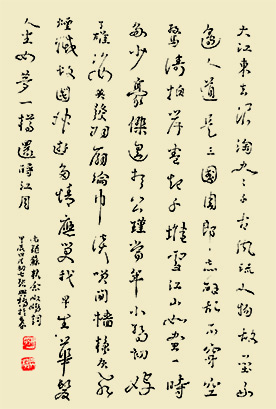 大江東去浪淘盡千古風流人物故壘西
邊人道是三國周郎赤壁亂石穿空
驚濤拍岸捲起千堆雪江山如畫一時
多少豪傑遙想公瑾當年小喬初嫁
了雄姿英發羽扇綸巾談笑間檣櫓灰飛
煙滅故國神遊多情應笑我早生華髮
人生如夢一樽還酹江月
蘇軾念奴嬌詞